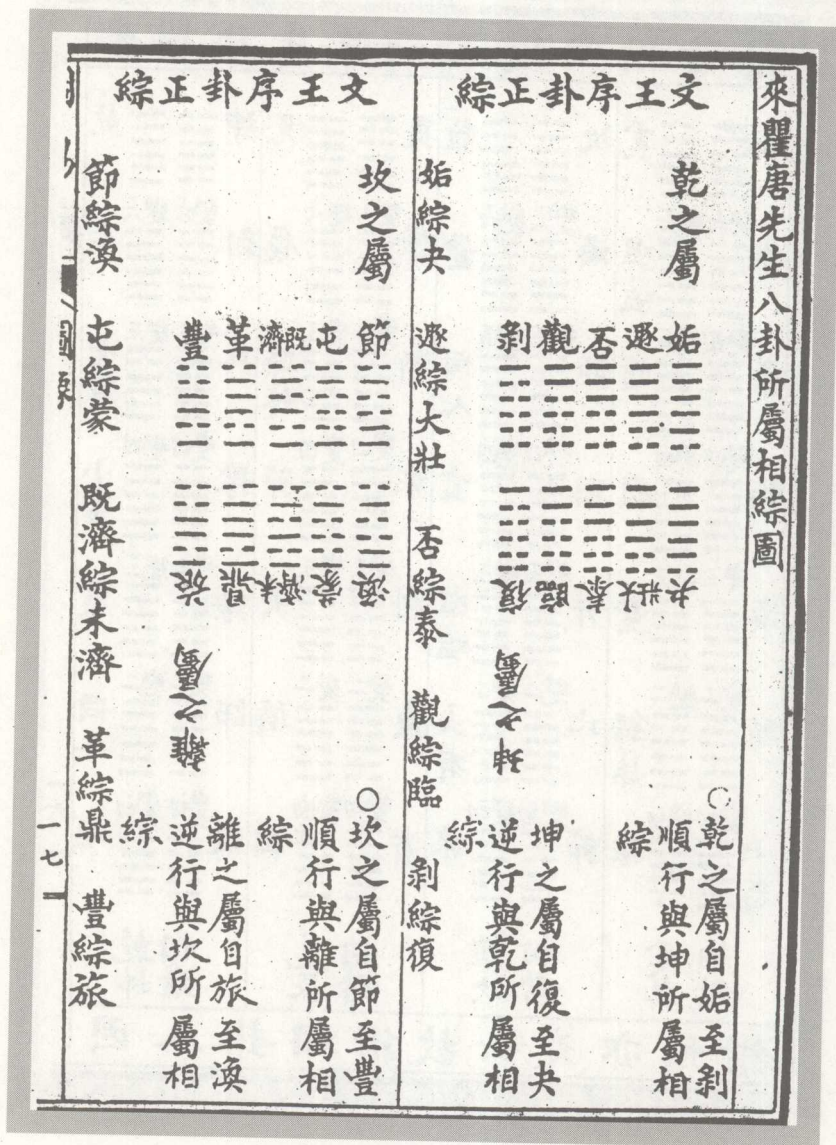 來瞿唐先生八卦所屬相綜圖
文王序卦正綜
乾之屬
姤
遯
否
觀
剝
夬
大壯
泰
臨
復
坤之屬
○乾之屬自姤至剝
順行與坤所屬相
綜
坤之屬自復至夬
逆行與乾所屬相
綜
姤綜夬 遯綜大壯 否綜泰 觀綜臨 剝綜復
文王序卦正綜
坎之屬
節
屯
既濟
革
豐
渙
蒙
未濟
鼎
旅
離之屬
○坎之屬自節至豐
順行與離所屬相
綜
離之屬自旅至渙
逆行與坎所屬相
綜
節綜渙 屯綜蒙 既濟綜未濟 革綜鼎 豐綜旅
圖像
一七